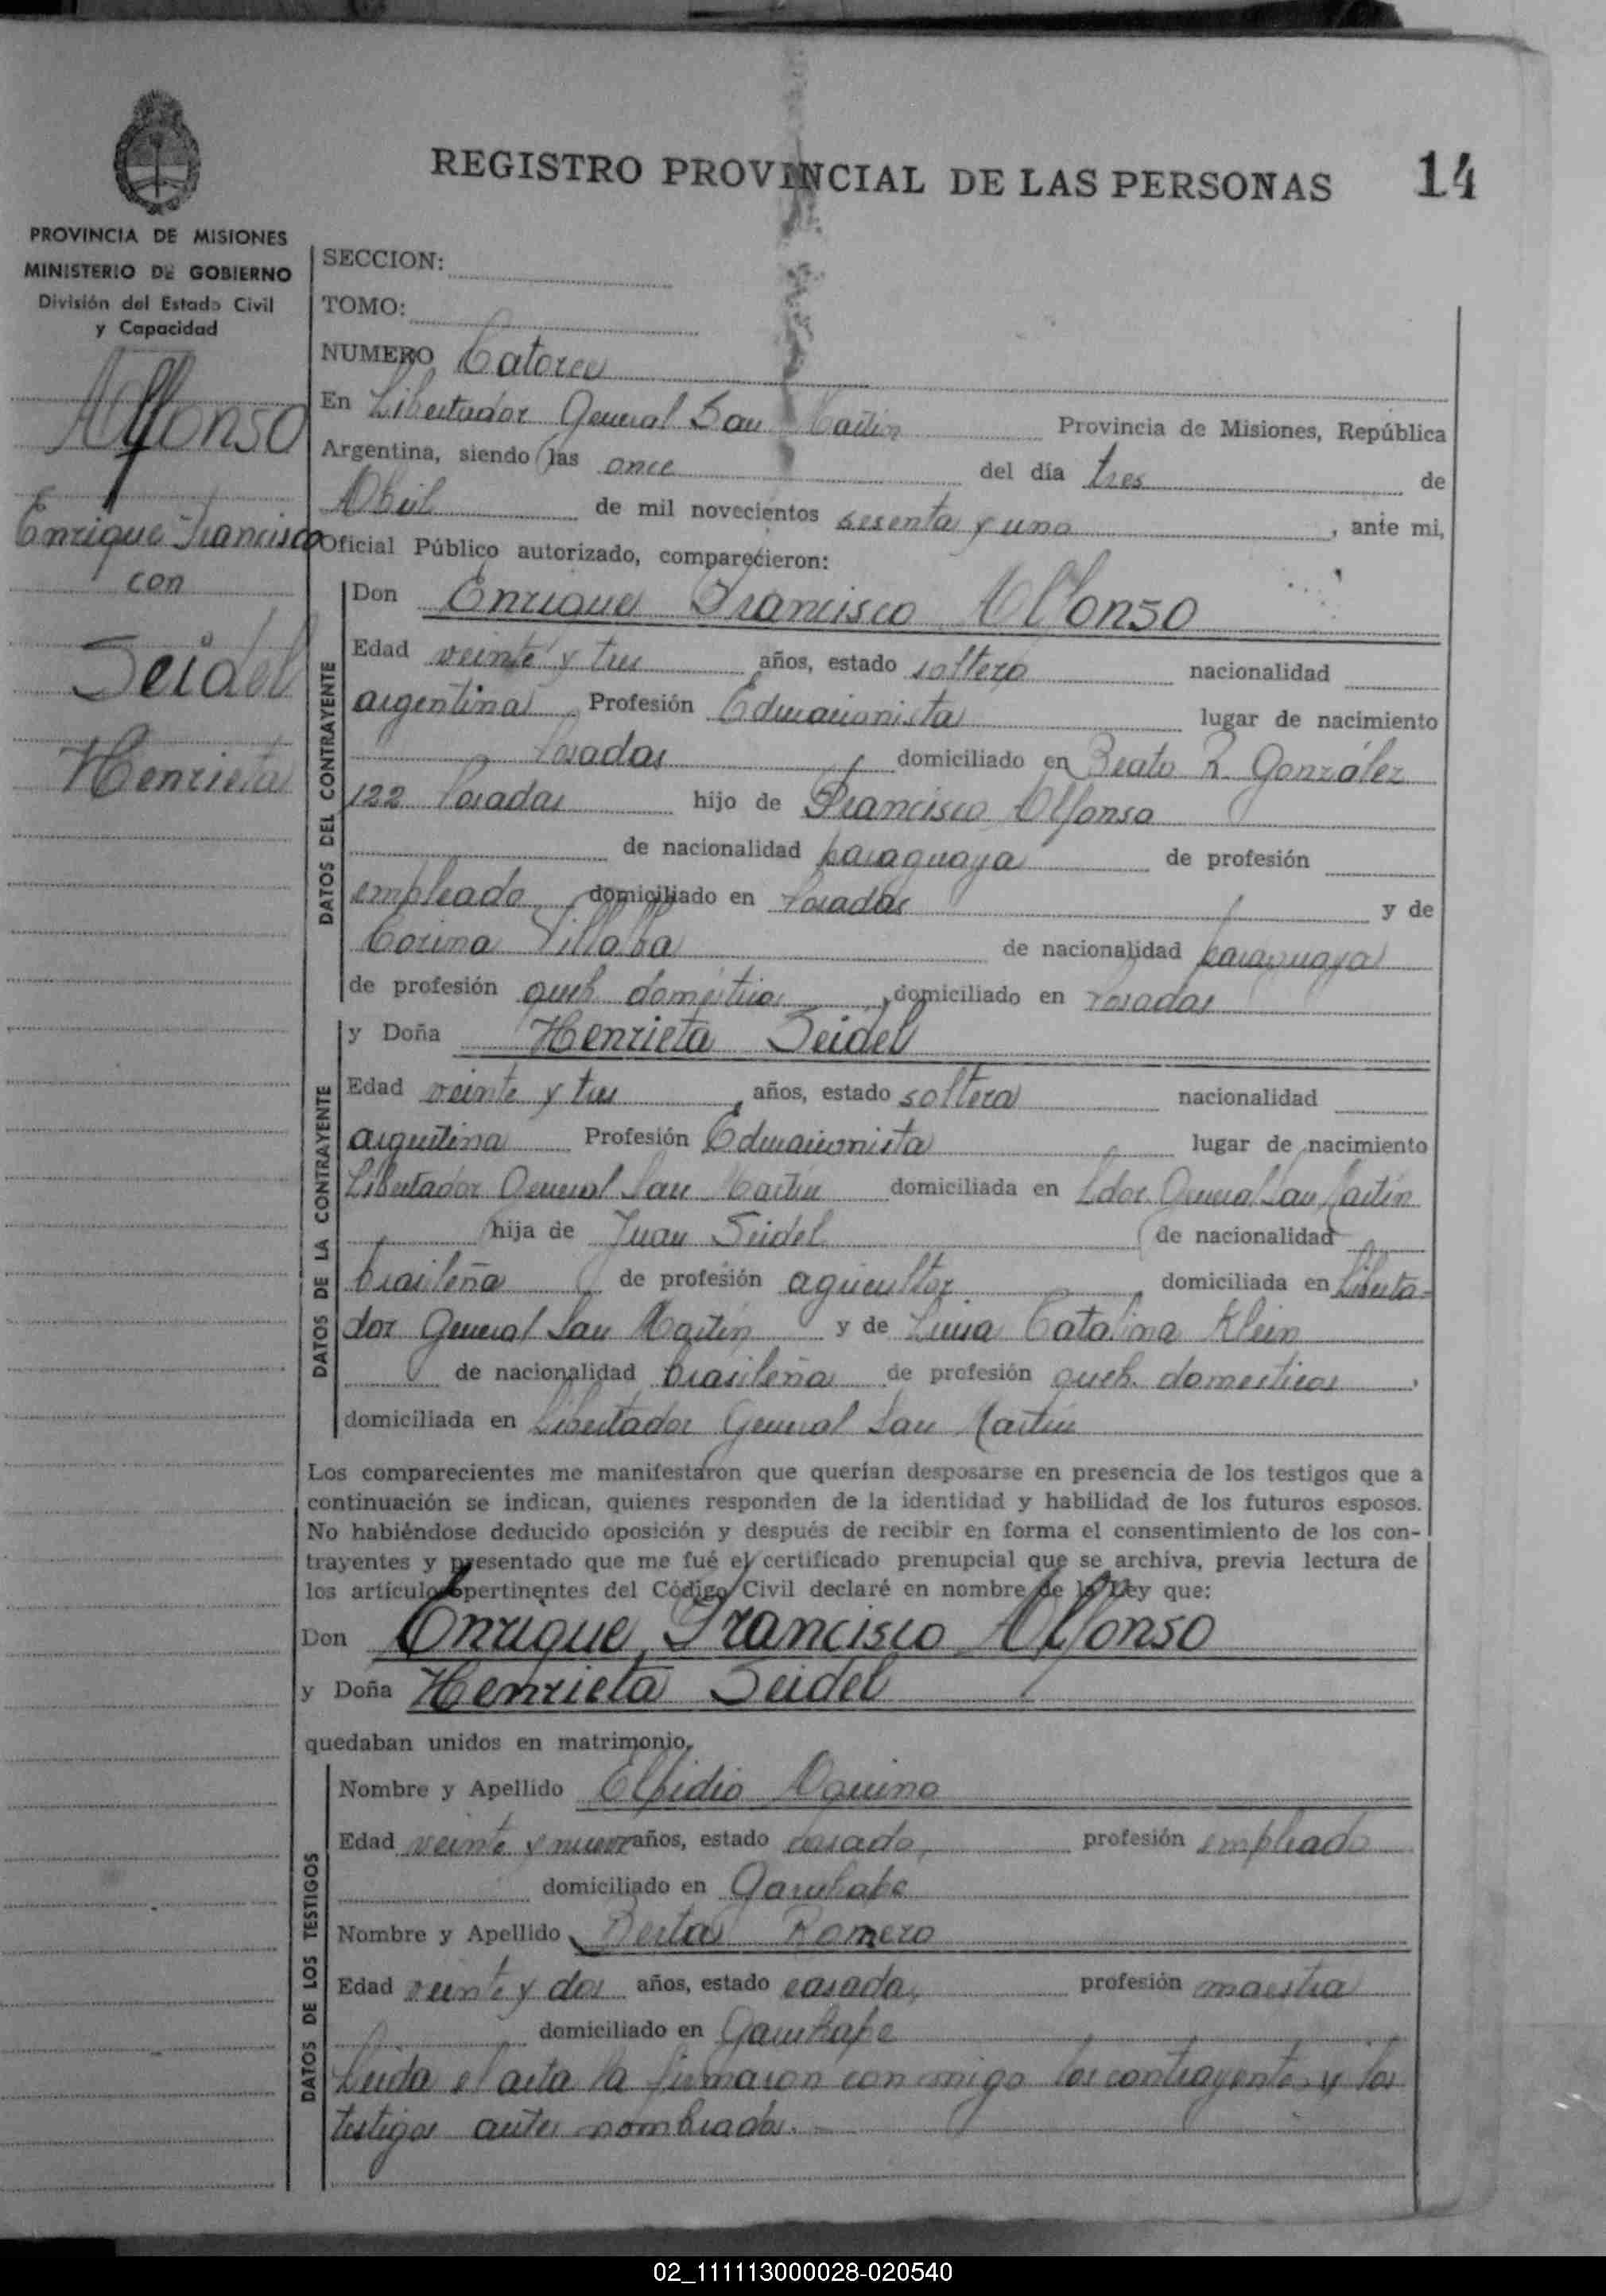 REGISTRO PROVINCIAL DE LAS PERSONAS 14
PROVINCIA DE MISIONES
MINISTERIO DE GOBIERNO
División del Estado Civil
y Capacidad
Alfonso
Enrique Francisco
con
Seidel
Henrieta
SECCION:
TOMO:
NUMERO Catorce
En Libertador General San Martín Provincia de Misiones, República
Argentina, siendo las once del día tres de
Abril de mil novecientos sesenta y uno, ante mi,
Oficial Público autorizado, comparecieron:
DATOS DEL CONTRAYENTE
Don Enrique Francisco Alfonso
Edad veinte y tres años, estado soltero nacionalidad
argentina Profesión Educacionista lugar de nacimiento
Posadas domiciliado en Beato R. González
122 Posadas hijo de Francisco Alfonso
de nacionalidad paraguaya de profesión
empleado domiciliado en Posadas y de
Corina Villalba de nacionalidad paraguaya
de profesión queh. domésticos, domiciliado en Posadas
DATOS DE LA CONTRAYENTE
y Doña Henrieta Seidel
Edad veinte y tres, años, estado soltera nacionalidad
argentina Profesión Educacionista lugar de nacimiento
Libertador General San Martín domiciliada en Ldor. General San Martín
hija de Juan Seidel de nacionalidad
brasileña de profesión agricultor domiciliada en Liberta-
dor General San Martín y de Luisa Catalina Klein
de nacionalidad brasileña de profesión queh. domesticos,
domiciliada en Libertador General San Martín
Los comparecientes me manifestaron que querían desposarse en presencia de los testigos que a
continuación se indican, quienes responden de la identidad y habilidad de los futuros esposos.
No habiéndose deducido oposición y después de recibir en forma el consentimiento de los con-
trayentes y presentado que me fué el certificado prenupcial que se archiva, previa lectura de
los artículos pertinentes del Código Civil declaré en nombre de la Ley que:
Don Enrique Francisco Alfonso
y Doña Henrieta Seidel
quedaban unidos en matrimonio,
DATOS DE LOS TESTIGOS
Nombre y Apellido Elpidio Aquino
Edad veinte y nueve años, estado casado, profesión empleado
domiciliado en Garuhape
Nombre y Apellido Berta Romero
Edad veinte y dos años, estado casada, profesión maestra
domiciliado en Garuhape
Leida el acta la firmaron conmigo los contrayentes y los
testigos antes nombrados.-
02_111113000028-020540